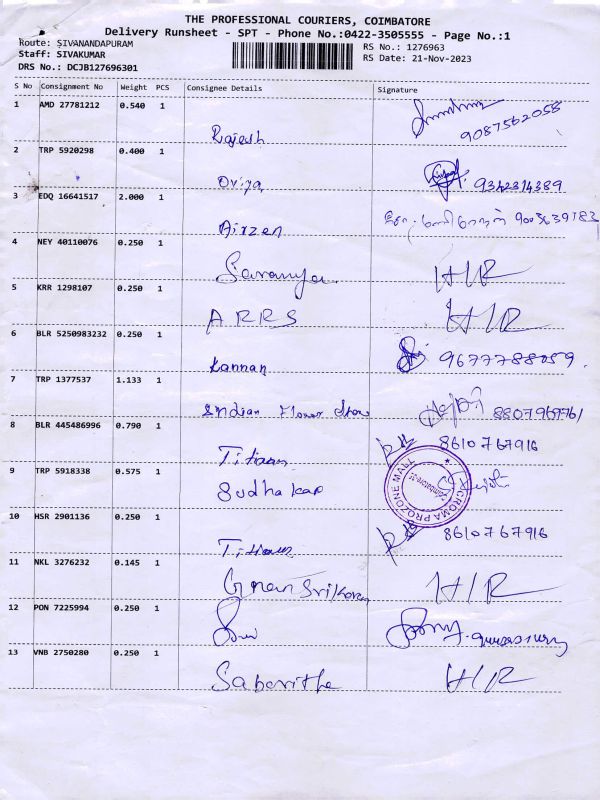 THE PROFESSIONAL COURIERS, COIMBATORE
Delivery Runsheet - SPT - Phone No.:0422-3505555 - Page No.:1
Route: SIVANANDAPURAM
Staff: SIVAKUMAR
DRS No.: DCJB127696301
RS No.: 1276963
RS Date: 21-Nov-2023
S No Consignment No Weight PCS Consignee Details Signature
1 AMD 27781212 0.540 1
Rajesh 9087562058
2 TRP 5920298 0.400 1
Oviya 9342314389
3 EDQ 16641517 2.000 1
Airzen
4 NEY 40110076 0.250 1
Saranya H/R
5 KRR 1298107 0.250 1
ARRS H/R
6 BLR 5250983232 0.250 1
Kannan 9677788059.
7 TRP 1377537 1.133 1
Indian Flower Show 8807967761
8 BLR 445486996 0.790 1
Titan 8610767916
9 TRP 5918338 0.575 1
Sudhakar
CROMA PROZONE MALL
10 HSR 2901136 0.250 1
Titan 8610767916
11 NKL 3276232 0.145 1
H/R
12 PON 7225994 0.250 1
13 VNB 2750280 0.250 1
Sabaritha H/R